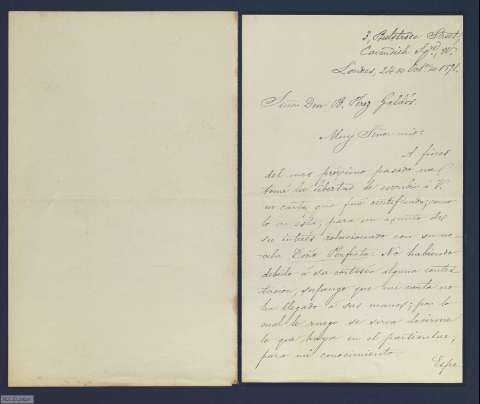 3, Bulstrode Street,
Cavendish Sqre, W.
Londres, 24 de Oct. de 1898.
Señor Don B. Perez Galdós.
Muy Señor mio:
A fines
del mes próximo pasado me
tomé la libertad de escribir á V.
en carta que fué certificada, como
lo es ésta, para un asunto de
su interés relacionado con su no-
vela Doña Perfecta. No habiendo
debido á su cortesia alguna contes-
tacion, supongo que mi carta no
ha llegado á sus manos; por lo
cual le ruego se sirva decirme
lo que haya en el particular,
para mi conocimiento.
Espe-